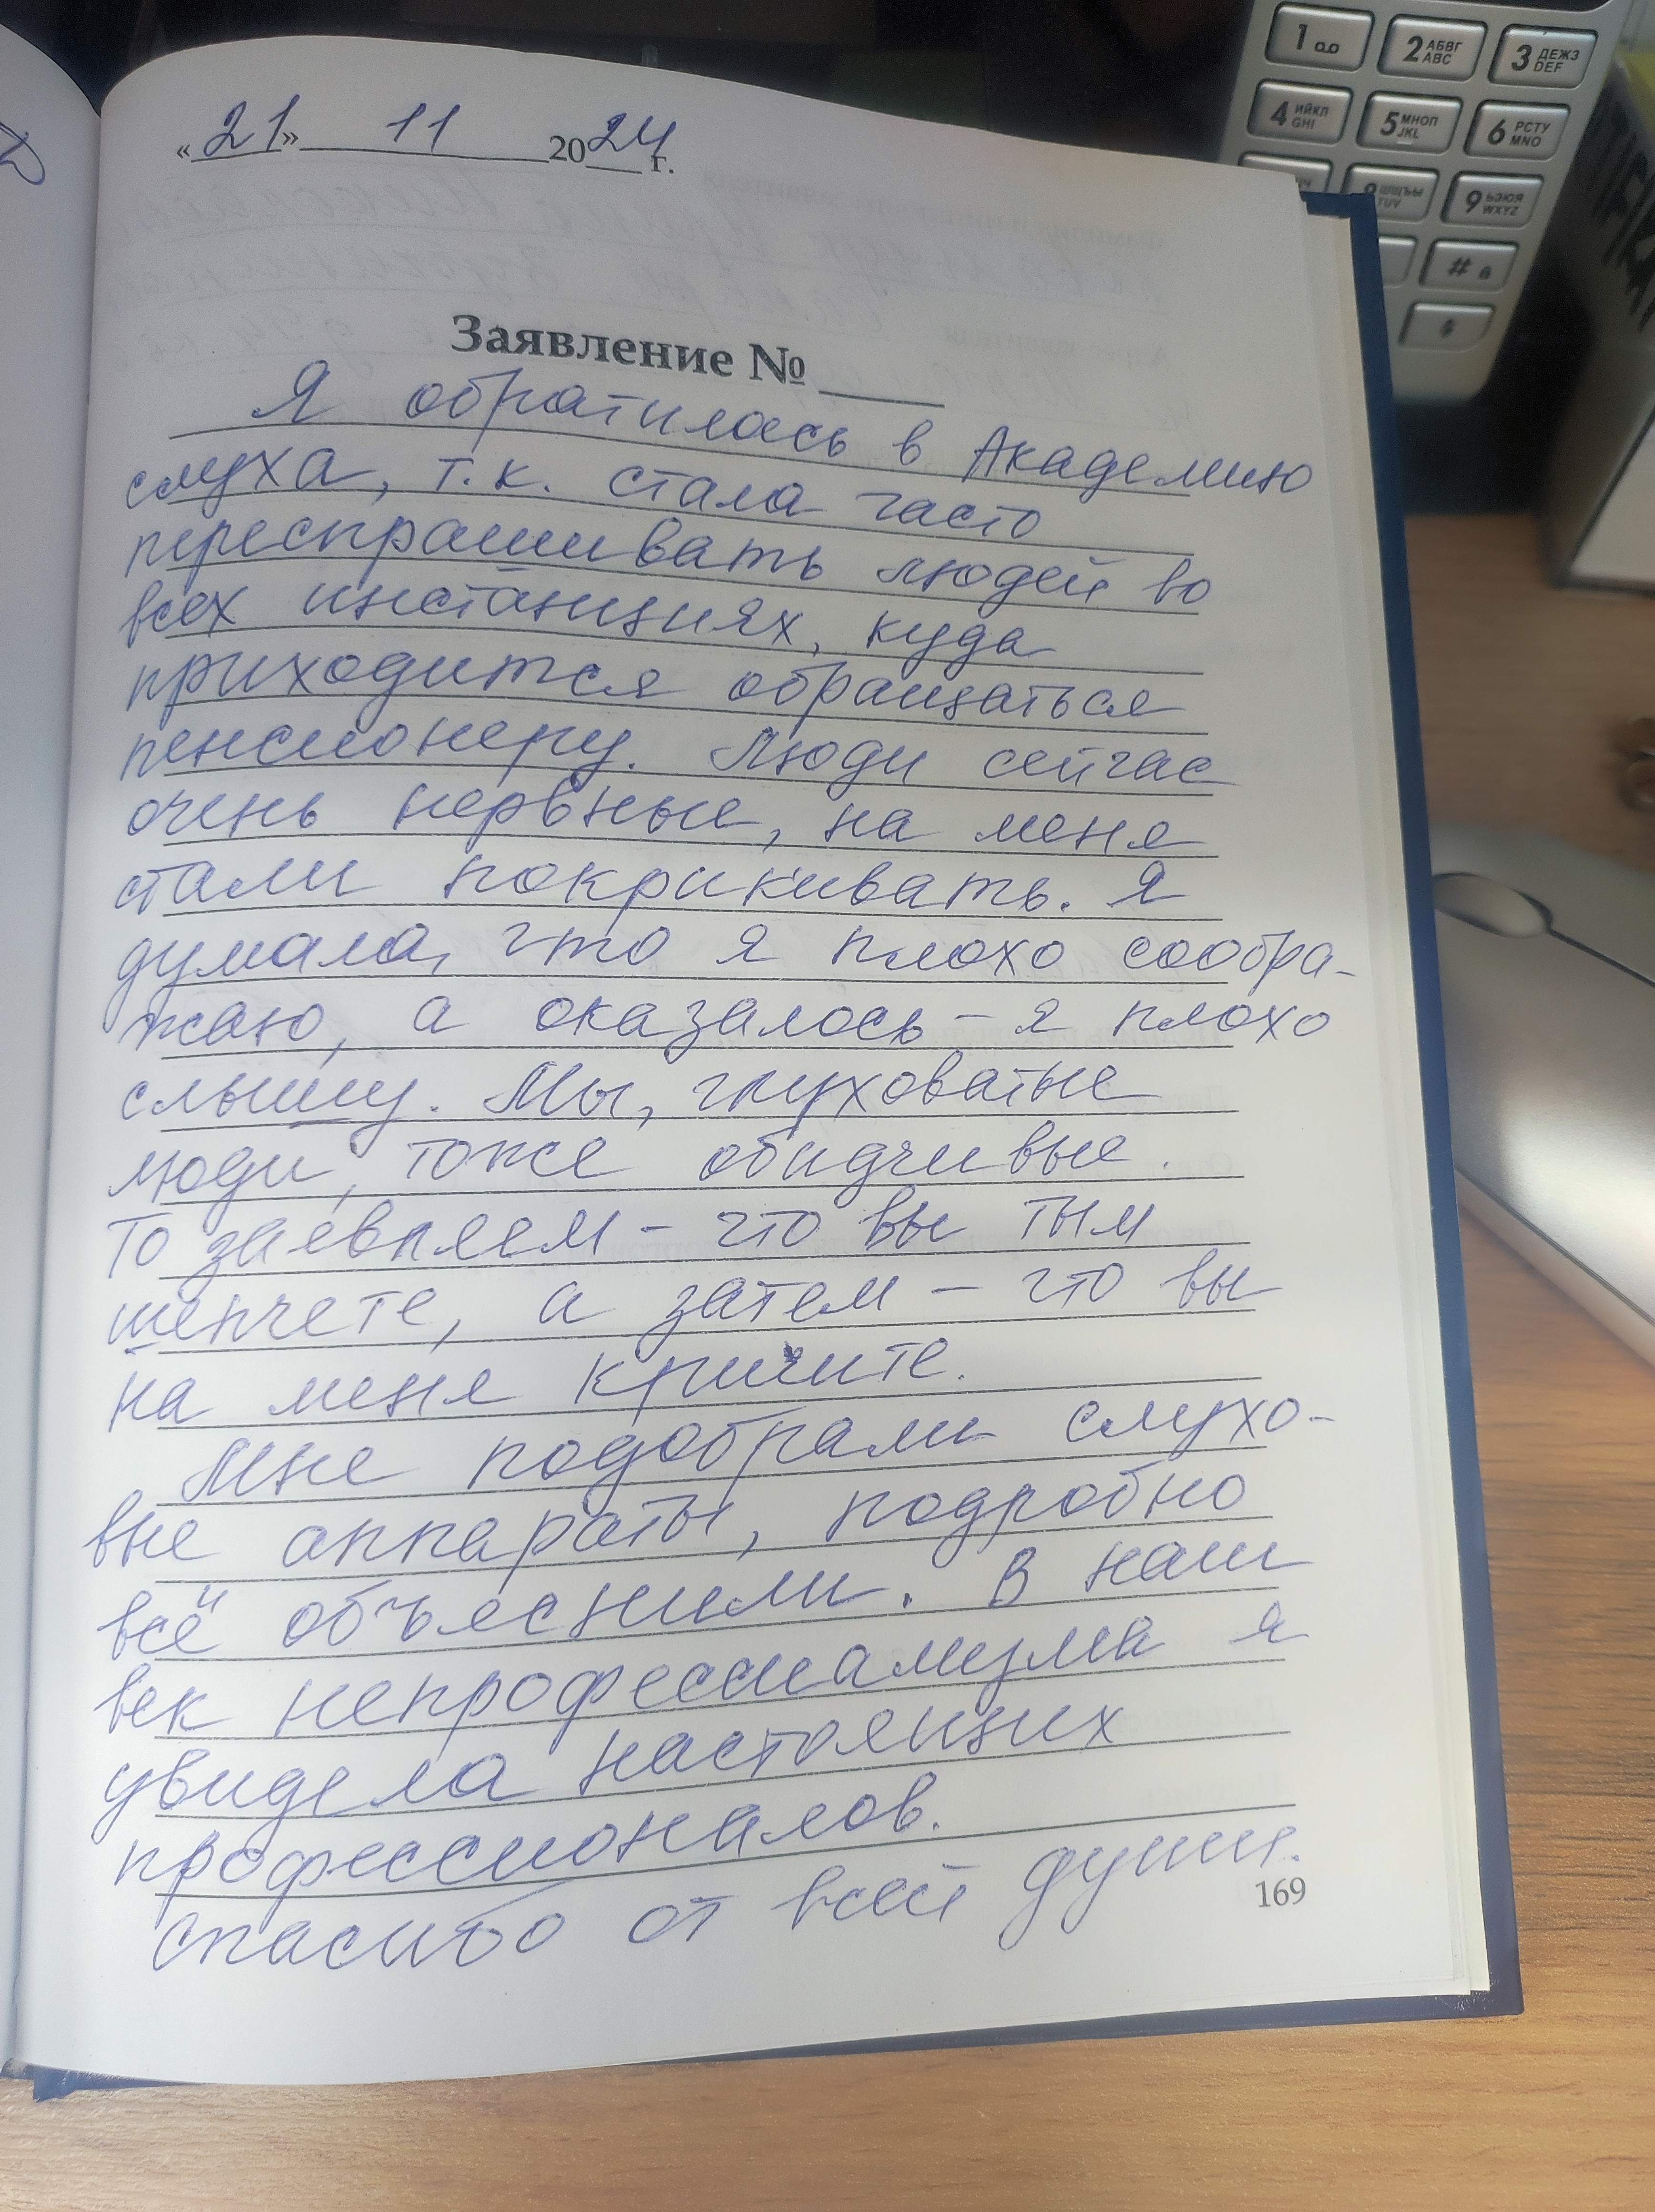 «21» 11 2024 г.
Заявление № ____
Я обратилась в Академию
слуха, т.к. стала часто
переспрашивать людей во
всех инстанциях, куда
приходится обращаться
пенсионеру. Люди сейчас
очень нервные, на меня
стали покрикивать. Я
думала, что я плохо сообра-
жаю, а оказалось - я плохо
слышу. Мы, глуховатые
люди, тоже обидчивые.
То заявляем - что вы там
шепчете, а затем - что вы
на меня кричите.
Мне подобрали слухо-
вые аппараты, подробно
всё объяснили. В наш
век непрофессиализма я
увидела настоящих
профессионалов.
спасибо от всей души.
169
1
2 АБВГ ABC
3 ДЕЖЗ DEF
4 ИЙКЛ GHI
5 МНОП JKL
6 РСТУ MNO
8 ШЩЪЫ TUV
9 ЬЭЮЯ WXYZ
#